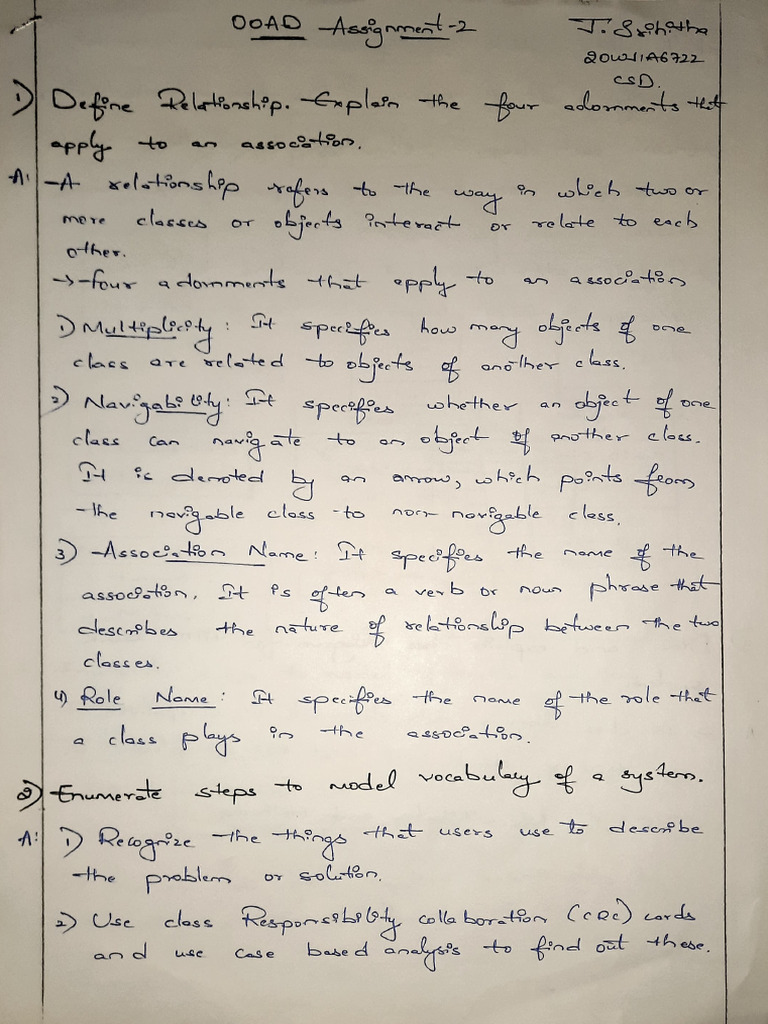 OOAD Assignment-2
J. Srihitha
20WJ1A6722
CSD.
1) Define Relationship. Explain the four adornments that
apply to an association.
A: -A relationship refers to the way in which two or
more classes or objects interact or relate to each
other.
→ four adornments that apply to an association
1) Multiplicity: It specifies how many objects of one
class are related to objects of another class.
2) Navigability: It specifies whether an object of one
class can navigate to an object of another class.
It is denoted by an arrow, which points from
the navigable class to non-navigable class.
3) Association Name: It specifies the name of the
association. It is often a verb or noun phrase that
describes the nature of relationship between the two
classes.
4) Role Name: It specifies the name of the role that
a class plays in the association.
2) Enumerate steps to model vocabulary of a system.
A: 1) Recognize the things that users use to describe
the problem or solution.
2) Use class Responsibility collaboration (CRC) cards
and use case based analysis to find out these.